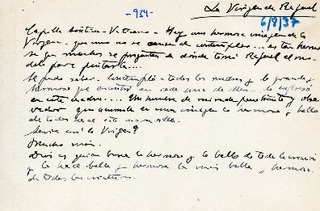 La Virgen de Rafael
-954-
6/8/37
Capilla Sixtina - Vaticano - Hay una hermosa imagen de la
Virgen, que uno no se cansa de contemplar... es tan hermosa
que muchos se preguntan de dónde tomó Rafael el mo
delo para pintarla...
Se puede saber. Contempló a todas las madres y lo grande y
hermoso que encontró en cada una de ellas lo
en este cuadro... Un hombre de mirada penetrante y obser
vador que en una imagen lo hermoso y bello
de todas hizo esta maravilla.
la Virgen?
Mucho más.
Dios es quien tiene lo hermoso y lo bello de toda la creación
y la hace bella y hermosa la más bella y hermosa
de todas las criaturas.